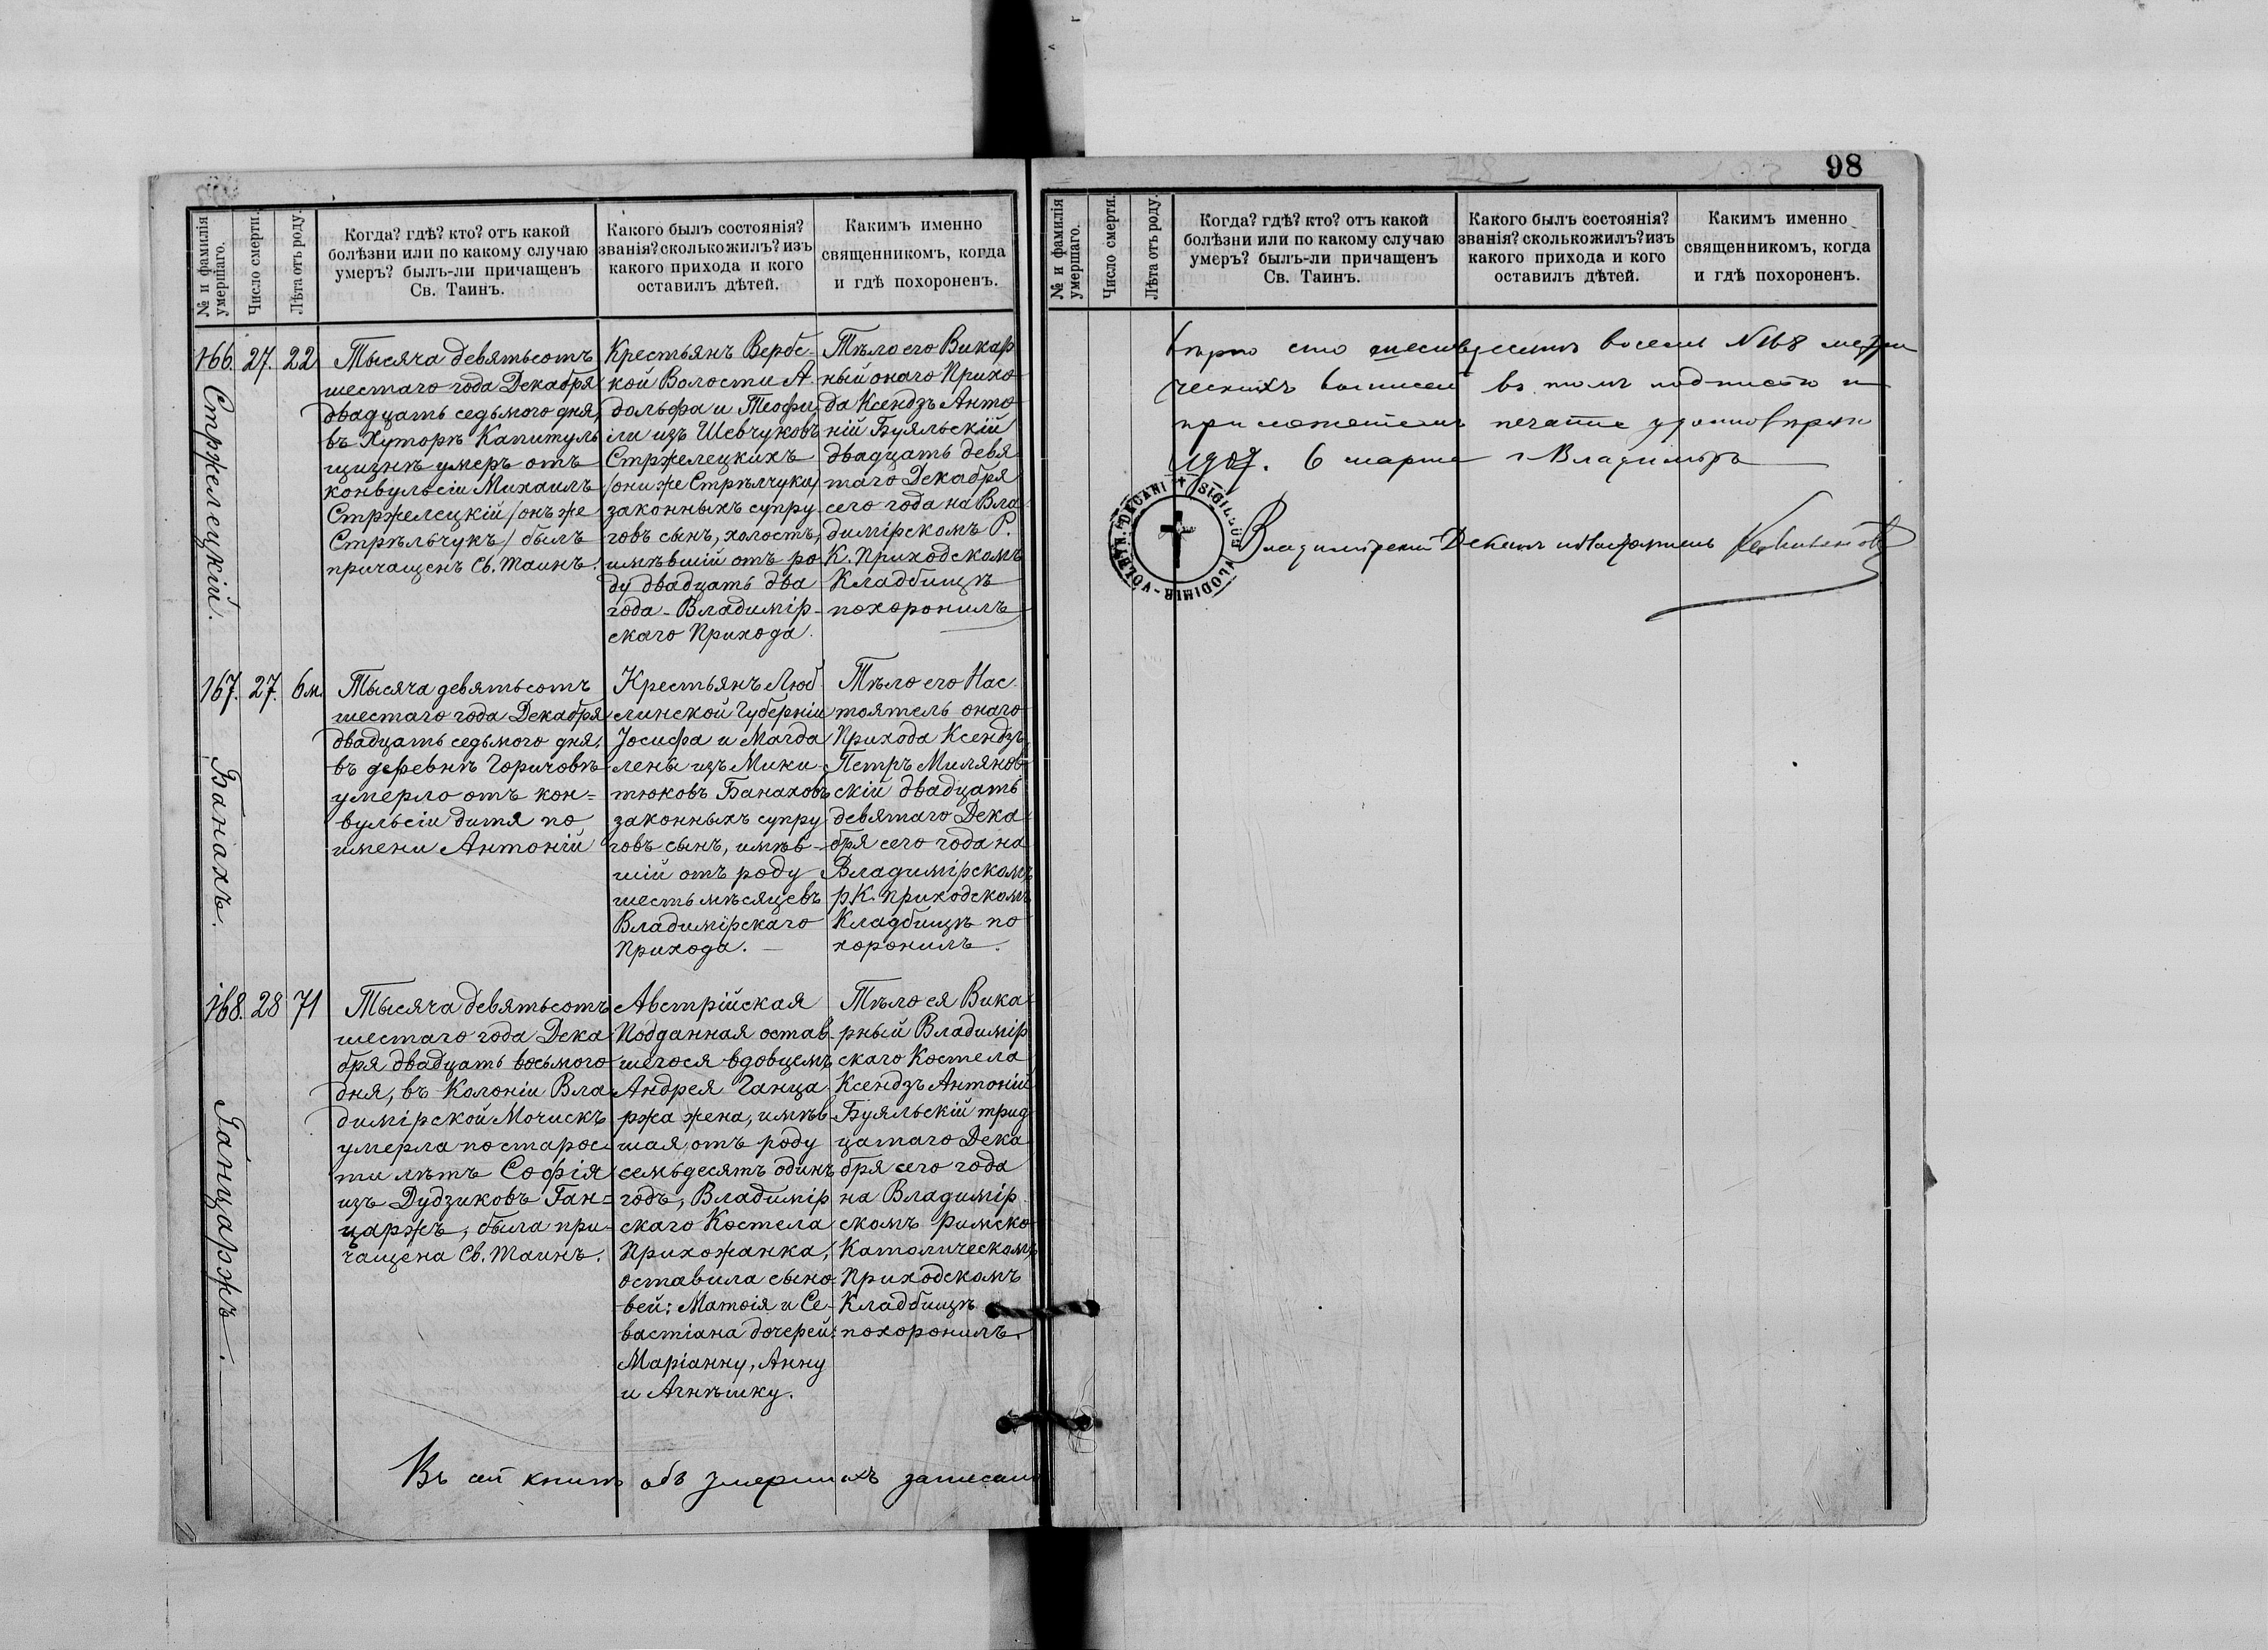 98
№ и фамилія умершаго.
Число смерти.
Лѣта отъ роду.
Когда? гдѣ? кто? отъ какой
болѣзни или по какому случаю
умеръ? былъ-ли причащенъ
Св. Таинъ.
Какого былъ состоянія?
званія? сколько жилъ? изъ
какого прихода и кого
оставилъ дѣтей.
Какимъ именно
священникомъ, когда
и гдѣ похороненъ.
166. 27. 22
Стржелецкій.
Тысяча девятьсотъ
шестаго года Декабря
двадцать седьмого дня,
въ Хуторѣ Капитуль
щизнѣ умеръ отъ
конвульсіи Михаилъ
Стржелецкій /онъ же
Стрѣльчукъ/ былъ
причащенъ Св. Таинъ.
Крестьянъ Вербс-
кой Волости А
дольфа и Теофи
іли изъ Шевчуковъ
Стржелецкихъ
/они же Стрѣлчуки/
законныхъ супру
говъ сынъ, холостъ,
имѣвшій отъ ро
ду двадцать два
года - Владимір-
скаго Прихода.
Тѣло его Викар
ный онаго Прихо
да Ксендзъ Анто
ній Буяльскій
двадцать девя
таго Декабря
сего года на Вла
димірскомъ Р.
К. Приходскомъ
Кладбищѣ
похоронилъ
167. 27. 6 м.
Банахъ.
Тысяча девятьсотъ
шестаго года Декабря
двадцать седьмого дня,
въ деревнѣ Горичовѣ
умерло отъ кон=
вульсіи дитя по
имени Антоній
Крестьянъ Люб
линской Губерніи
Іосифа и Магда
лены изъ Мики
тюковъ Банаховъ
законныхъ супру
говъ сынъ, имѣв-
шій отъ роду
шесть мѣсяцевъ
Владимірскаго
Прихода. —
Тѣло его Нас
тоятель онаго
Прихода Ксендзъ
Петръ Миланов
скій двадцать
девятаго Дека
бря сего года на
Владимірскомъ
р К. приходскомъ
Кладбищѣ по
хоронилъ.
168. 28 71
Ганцаржъ.
Тысяча девятьсотъ
шестаго года Дека
бря двадцать восьмого
дня, въ Колоніи Вла
димірской Мочискъ
умерла по старос
ти лѣтъ Софія
изъ Дудзиковъ Ган=
царжъ, была при-
чащена Св. Таинъ.
Австрійская
Подданная остав-
шегося вдовцемъ
Андрея Ганца
ржа жена, имѣв-
шая отъ роду
семьдесятъ одинъ
годъ, Владимір
скаго Костела
Прихожанка,
оставила сыно-
вей: Матѳія и Се-
вастіана дочерей:
Маріанну, Анну
и Агнѣшку.
Тѣло ея Вика
рный Владимір
скаго Костела
Ксендзъ Антоній
Буяльскій трид
цатаго Дека
бря сего года
на Владимір
скомъ римско
Католическомъ
Приходскомъ
Кладбищѣ
похоронилъ.
Въ сей книгѣ объ умершихъ записано
№ и фамилія умершаго.
Число смерти.
Лѣта отъ роду.
Когда? гдѣ? кто? отъ какой
болѣзни или по какому случаю
умеръ? былъ-ли причащенъ
Св. Таинъ.
Какого былъ состоянія?
званія? сколько жилъ? изъ
какого прихода и кого
оставилъ дѣтей.
Какимъ именно
священникомъ, когда
и гдѣ похороненъ.
вѣрно сто шестьдесятъ восемь N 168 метри
ческихъ въ томъ подписью и
приложеніемъ печати
1907. 6 марта г. Владиміръ
SIGILLUM VLODIMIR-VOLYN. DECANI
Владимірскій Деканъ